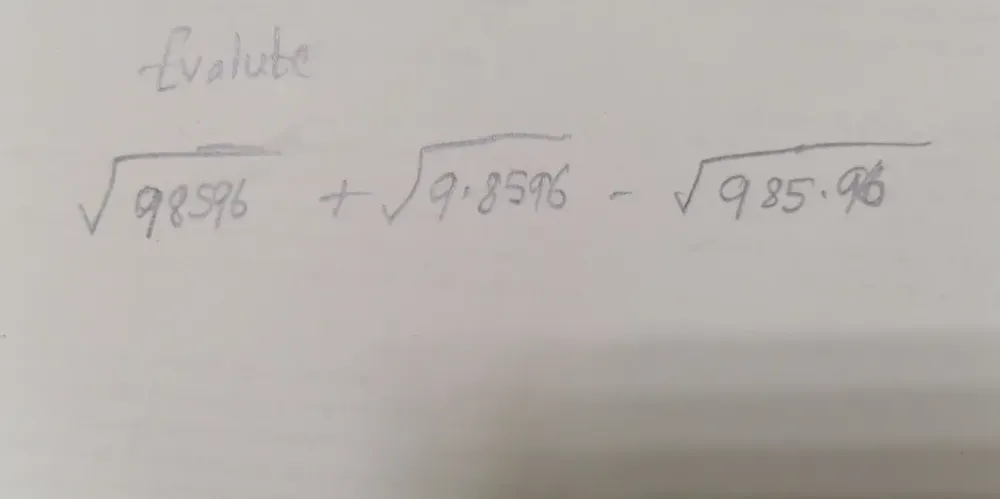 Evalute
√98596 + √9.8596 - √985.96